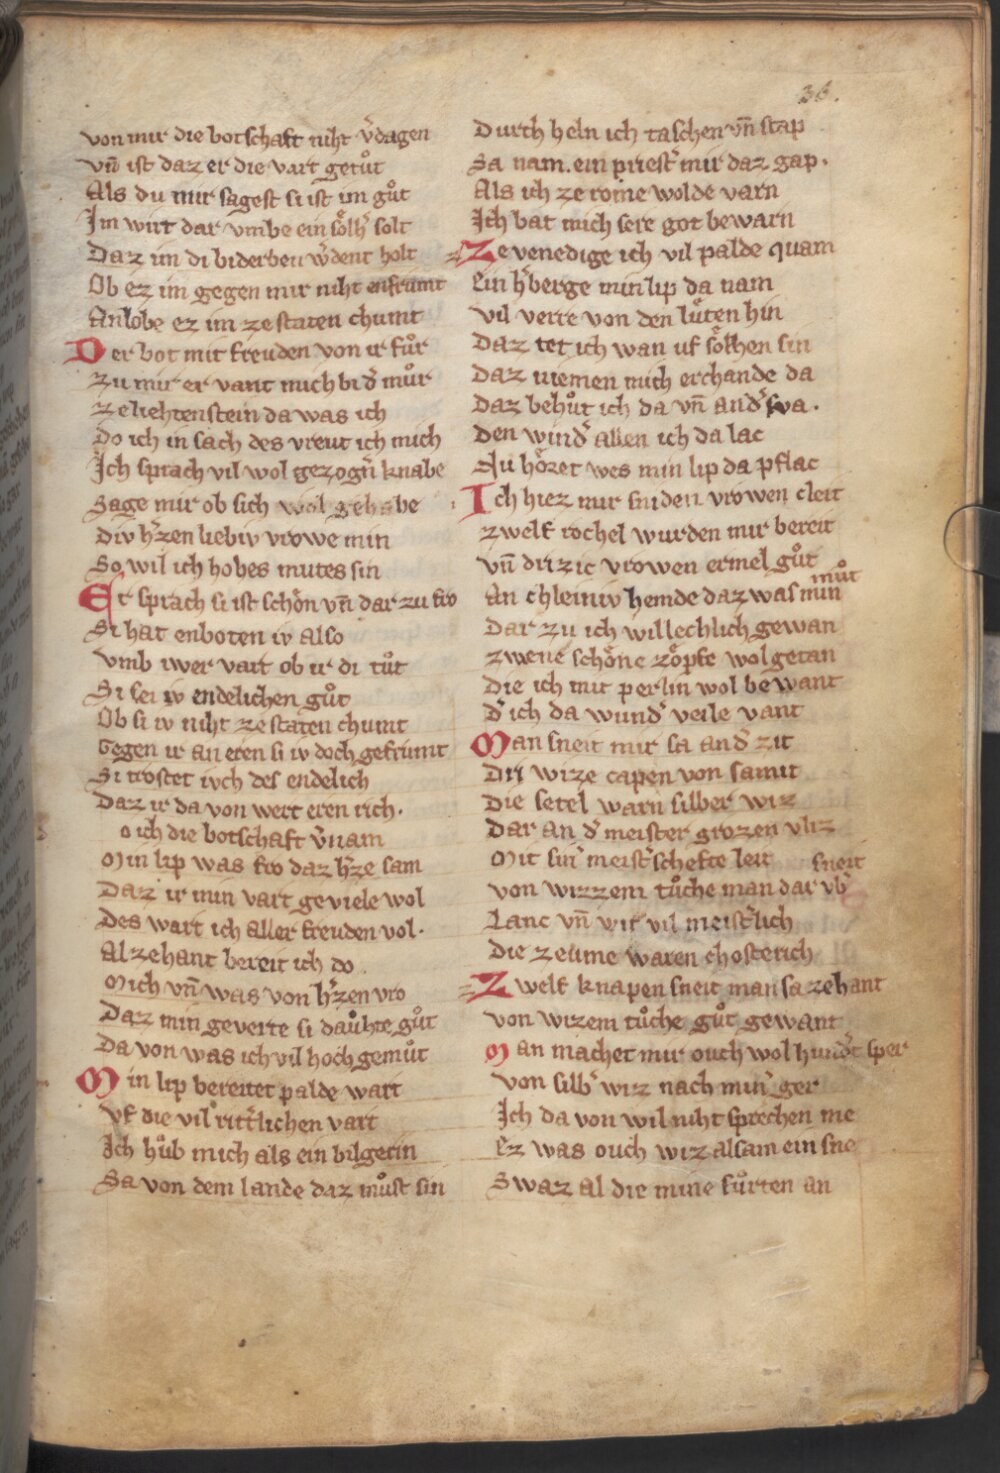 36.
von mir die botschaft niht v̉dagen
vn̄ ist daz er die vart getuͦt
Als du mir sagest si ist im guͦt
Im wirt dar vmbe ein soͤlh̉ solt
Daz im di biderben ẘdent holt
Ob ez im gegen mir niht enfrumt
An lobe ez im ze staten chumt
Der bot mit freuden von ir fuͦr
zu mir er vant mich bi d̉ muͦr
ze liehtenstein da was ich
Do ich in sach des vreut ich mich
Ich sprach vil wol gezogn̄ knabe
Sage mir ob sich wol gehabe
Div h̉zen liebiv vrowe min
So wil ich hohes mutes sin
Er sprach si ist schoͤn vn̄ dar zu fro
Si hat enboten iv also
vmb iwer vart ob ir di tuͦt
Si sei iv endelichen guͦt
Ob si iv niht ze staten chumt
Gegen ir an eren si iv doch gefrumt
Si trostet ivch des endelich
Daz ir da von wert eren rich.
o ich die botschaft v̉nam
Min lip was fro daz h̉ze sam
Daz ir min vart geviele wol
Des wart ich aller freuden vol.
Alzehant bereit ich do
Mich vn̄ was von h̉zen vro
Daz min geverte si dauhte guͦt
Da von was ich vil hoch gemuͦt
Min lip bereitet palde wart
Vf die vil ritt̉lichen vart
Ich huͦb mich als ein bilgerin
Sa von dem lande daz muͦst sin
Durch heln ich taschen vn̄ stap
Sa nam. ein priest̉ mir daz gap.
Als ich ze rome wolde varn
Ich bat mich sere got bewarn
Ze venedige ich vil palde quam
Ein h̉berge min lip da nam
Vil verre von den luͤten hin
Daz tet ich wan uf soͤlhen sin
Daz niemen mich erchande da
Daz behuͦt ich da vn̄ and̉ swa.
Den wind̉ allen ich da lac
Nu hoͤret wes min lip da pflac
Ich hiez mir sniden vrowen cleit
zwelf rochel wurden mir bereit
vn̄ drizic vrowen ermel guͦt
An chleiniv hemde daz was min muͦt
Dar zu ich willechlich gewan
zwene schoͤne zoͤpfe wol getan
Die ich mit perlin wol bewant
d̉ ich da wund̉ veile vant
Man sneit mir sa and̉ zit
Dri wize capen von samit
Die setel warn silber wiz
Dar an d̉ meister grozen vliz
Mit sin̉ meist̉schefte leit
von wizzem tuͦche man dar vb̉ sneit
Lanc vn̄ wit vil meist̉lich
Die zeume waren chosterich
Zwelf knapen sneit man sa zehant
von wizem tuͦche guͦt gewant
Man machet mir ouch wol hund̉t sper
Von silb̉ wiz nach min̉ ger
Ich da von wil niht sprechen me
Ez was ouch wiz alsam ein sne
Swaz al die mine fuͤrten an